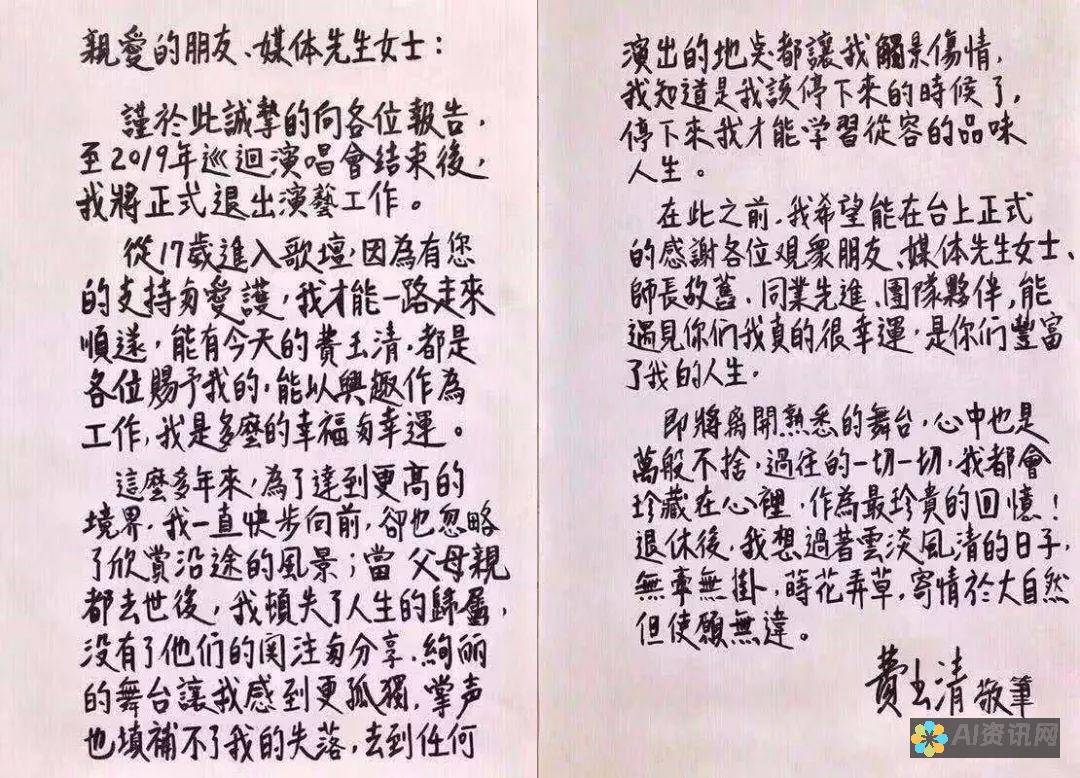 親愛的朋友、媒体先生女士：
謹於此誠摯的向各位報告，
至2019年巡迴演唱會結束後，
我將正式退出演藝工作。
從17歲進入歌壇，因為有您
的支持與愛護，我才能一路走來
順遂，能有今天的費玉清，都是
各位賜予我的，能以興趣作為
工作，我是多麼的幸福與幸運。
這麼多年來，為了達到更高的
境界，我一直快步向前，卻也忽略
了欣賞沿途的風景；當父母親
都去世後，我頓失了人生的歸屬，
没有了他們的関注與分享，絢丽
的舞台讓我感到更孤獨，掌声
也填補不了我的失落，去到任何
演出的地点都讓我觸景傷情，
我知道是我該停下來的時候了，
停下來我才能学習從容的品味
人生。
在此之前，我希望能在台上正式
的感謝各位观眾朋友、媒体先生女士、
師長故舊、同業先進、團隊夥伴，能
遇見你們我真的很幸運，是你們豐富
了我的人生，
即將离開熟悉的舞台，心中也是
萬般不捨，過往的一切一切，我都會
珍藏在心裡，作為最珍貴的回憶！
退休後，我想過著雲淡風清的日子，
無牽無掛，蒔花弄草，寄情於大自然
但使願無違。
費玉清 敬筆
AI资讯网